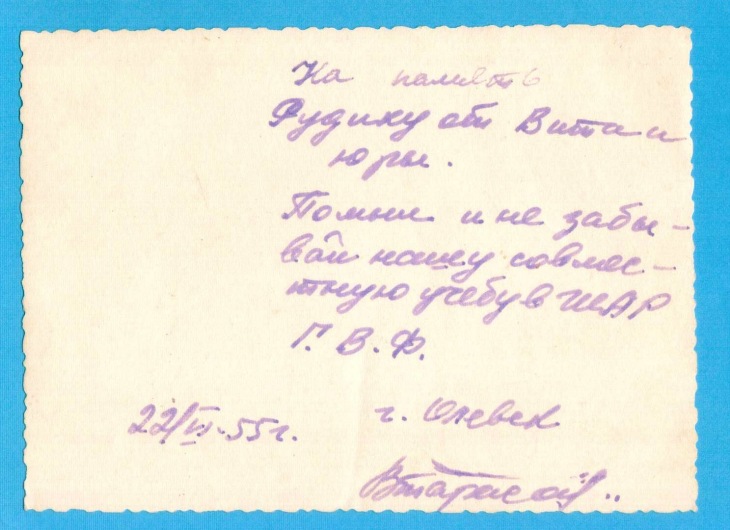 На память
Рудику от Вита и
Юры.
Помни и не забы-
вай нашу совмес-
тную учебу в ШАР
Г. В. Ф.
22/VI-55г. г. Олевск
ВТарасов..